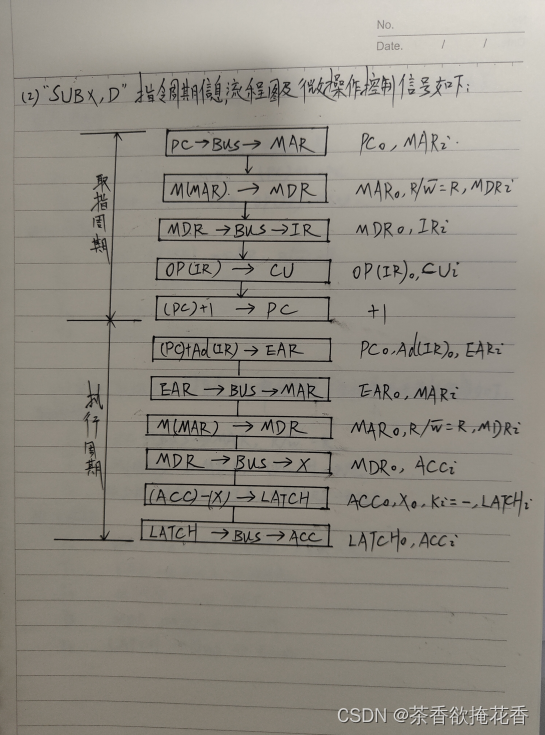 No.
Date. / /
(2)"SUB X,D"指令周期信息流程图及微操作控制信号如下:
取指周期
PC→BUS→MAR PCo, MARi.
M(MAR)→MDR MARo, R/W̅=R, MDRi
MDR→BUS→IR MDRo, IRi
OP(IR)→CU OP(IR)o, CUi
(PC)+1→PC +1
执行周期
(PC)+Ad(IR)→EAR PCo,Ad(IR)o,EARi
EAR→BUS→MAR EARo, MARi
M(MAR)→MDR MARo, R/W̅=R, MDRi
MDR→BUS→X MDRo, ACCi
(ACC)-(X)→LATCH ACCo,Xo,Ki=-,LATCHi
LATCH→BUS→ACC LATCHo, ACCi
CSDN @茶香欲掩花香